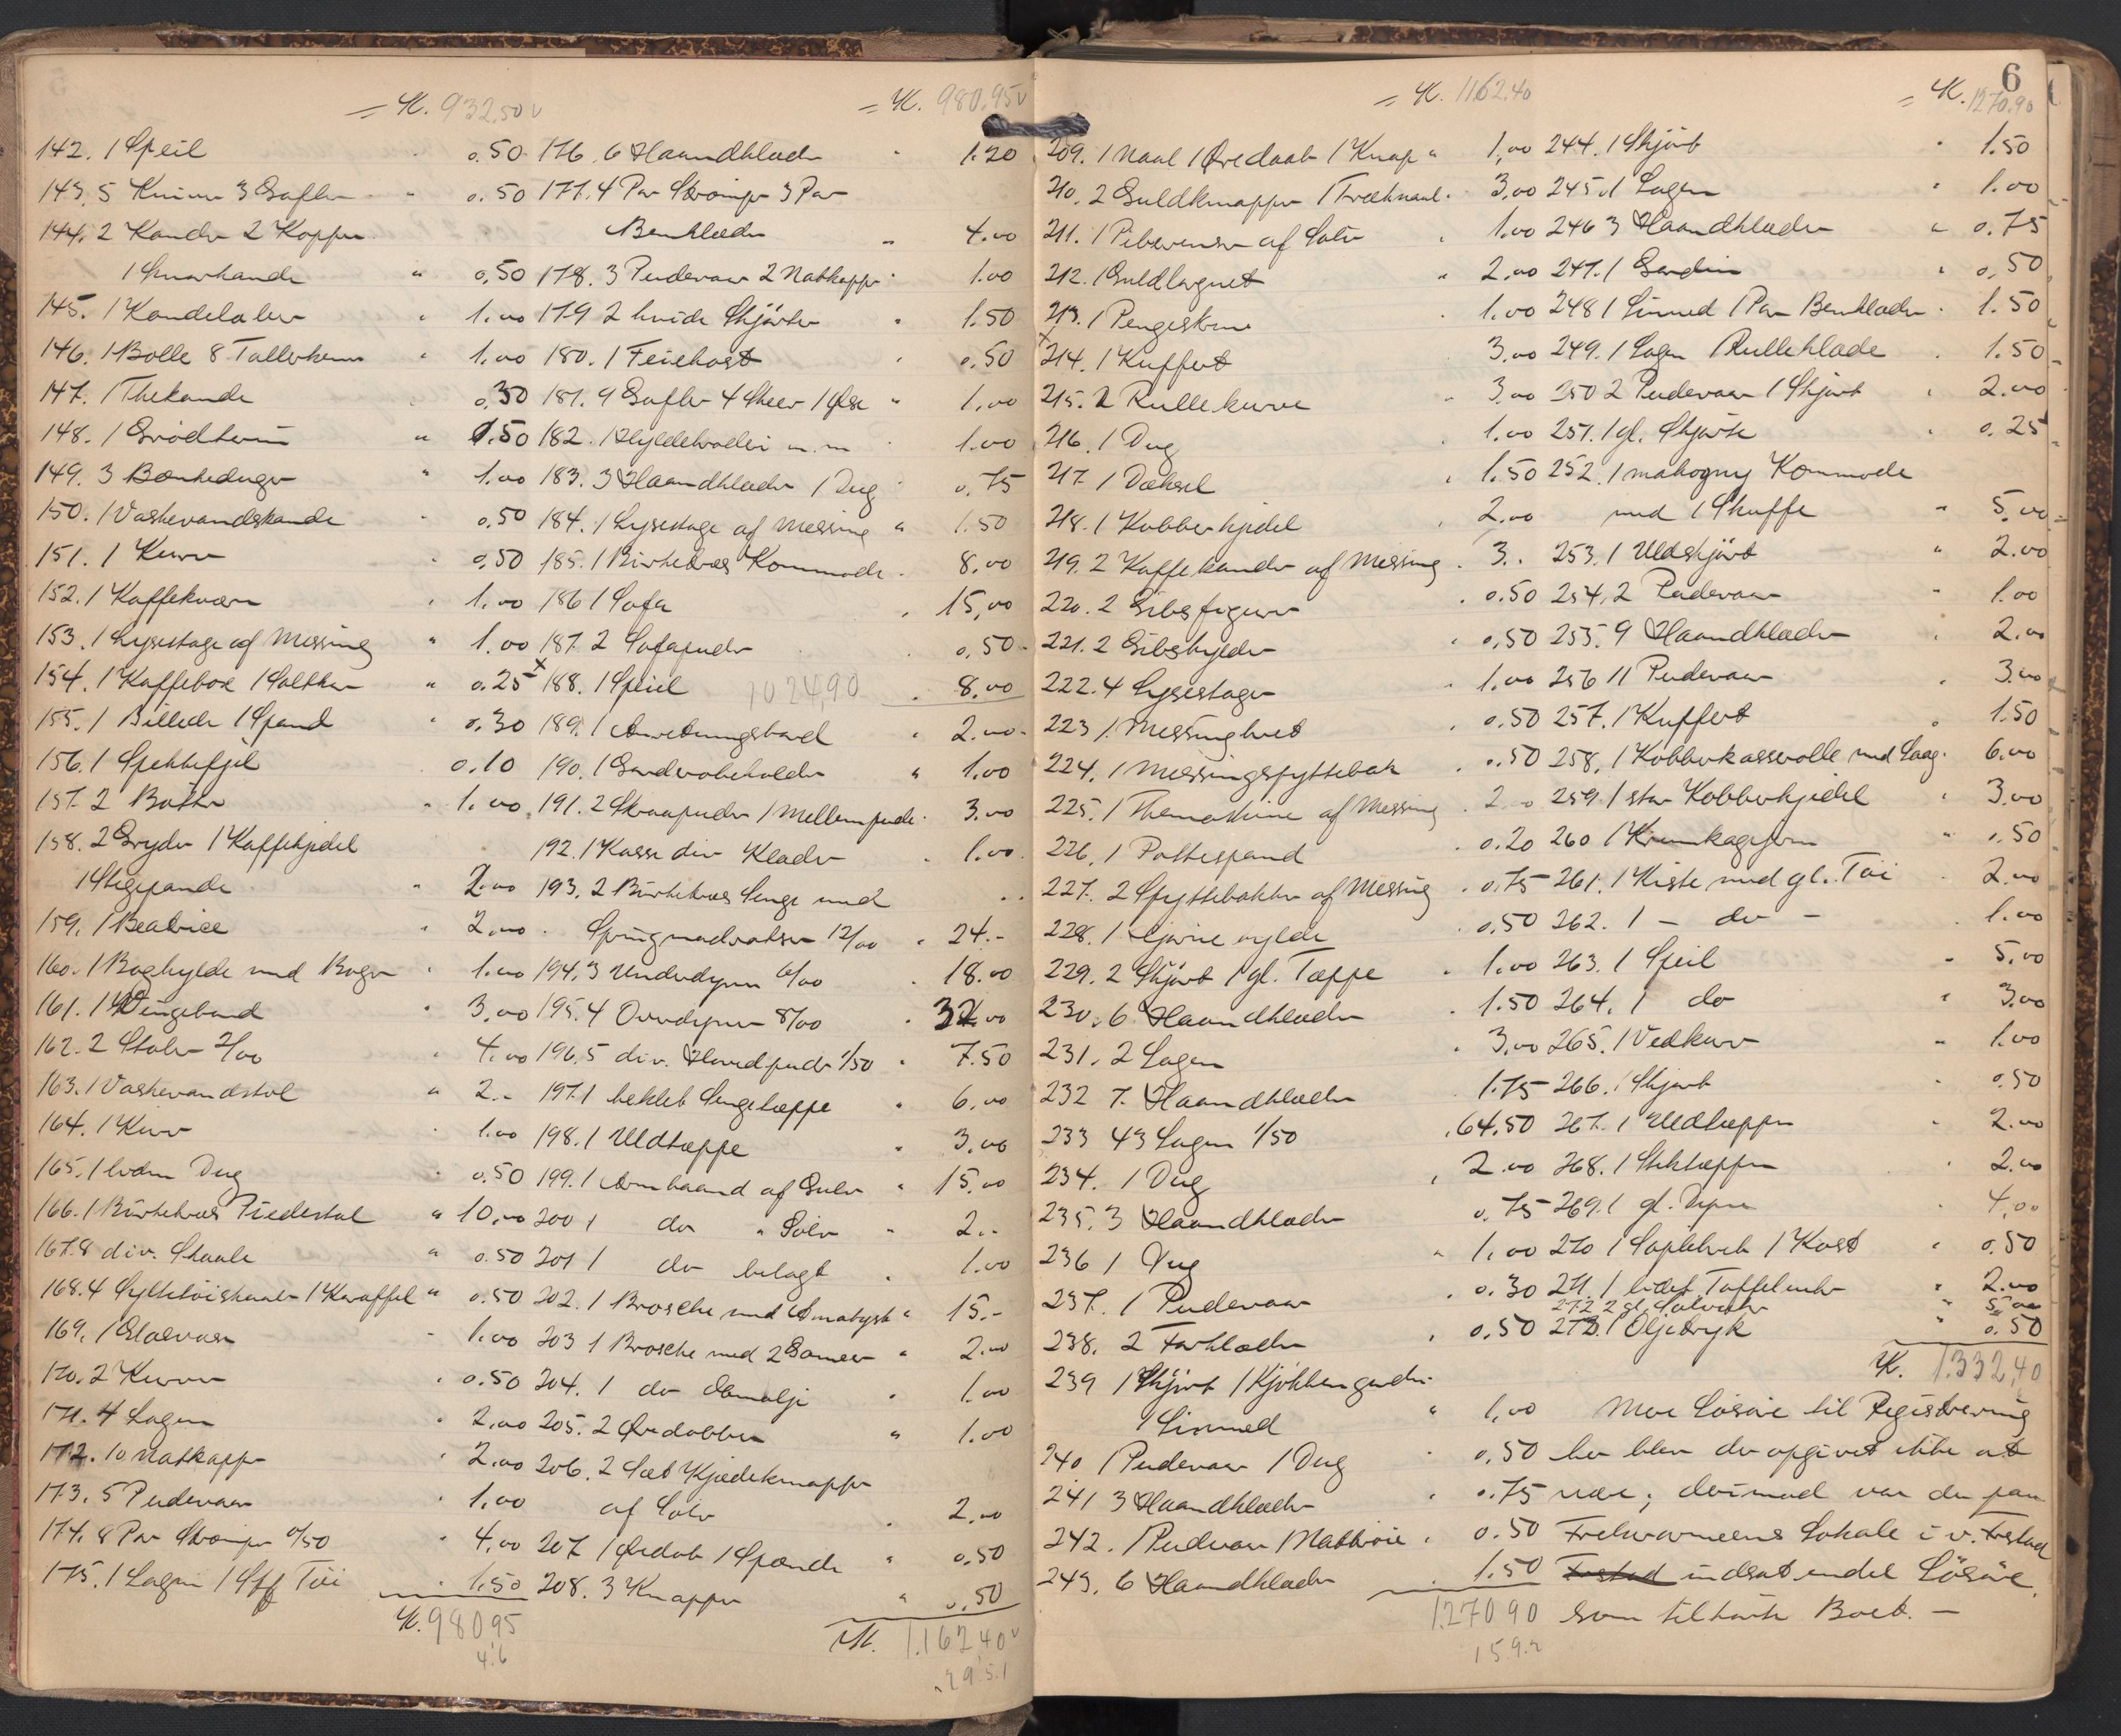 6
= K. 932.50
142. 1 Speil " 0.50
143. 5 Knive 3 Gafler " 0.50
144. 2 Kander 2 Kopper
1 " 0.50
145. 1 Kandelaber " 1.00
146. 1 Bolle 8 Tallerkener " 1.00
147. 1 Thekande 0.30
148. 1 " 1.50
149. 3 " 1.00
150. 1 Vaskevandskande " 0.50
151. 1 Kurv " 0.50
152. 1 Kaffekværn " 1.00
153. 1 Lysestage af Messing " 1.00
154. 1 Kaffebox 1 Saltkar " 0.25
155. 1 Billede 1 Spand " 0.30
156. 1 Spektefjel 0.10
157. 2 Bøtter " 1.00
158. 2 Gryder 1 Kaffekjedel
1 Stegepande " 2.00
159. 1 Beatrice " 2.00
160. 1 Boghylde med Bøger " 1.00
161. 1 Vringebord " 3.00
162. 2 Stoler 2/00 " 4.00
163. 1 Vaskevandstol " 2.-
164. 1 Kurv " 1.00
165. 1 Dug " 0.50
166. 1 Birketræs Piedestal " 10.00
167. 8 div. Skaale " 0.50
168. 4 Syltetøiskaale 1 Karaffel " 0.50
169. 1 Glasvase " 1.00
170. 2 Kurver " 0.50
171. 4 Lagen " 2.00
172. 10 Natkapper " 2.00
173. 5 Pudevaar " 1.00
174. 8 Par Strømper 0/50 " 4.00
175. 1 Lagen 1 Tøi 1.50
K. 980 95
4.6
= K. 980.95
176. 6 Haandklæder " 1.20
177. 4 Par Strømper 3 Par
Benklæder " 4.00
178. 3 Pudevaar 2 Natkapper " 1.00
179 2 hvide Skjørter " 1.50
180. 1 Feiekost " 0.50
181. 9 Gafler 4 Skeer 1 Øse " 1.00
182. 1 m.m " 1.00
183. 3 Haandklæder 1 Dug " 0.75
184. 1 Lysestage af Messing " 1.50
185. 1 Birketræs Kommode " 8.00
186 1 Sofa " 15.00
187 2 Sofapuder " 0.50
x
188. 1 Speil 1024,90 " 8.00
189. 1 Anretningsbord " 2.00
190. 1 Garderobeholder " 1.00
191. 2 Skraapuder 1 Mellempude " 3.00
192. 1 Kasse div Klæder " 1.00
193. 2 Birketræs Senge med
Springmadratser 12/00 " 24.-
194. 3 Underdyner 6/00 " 18.00
195. 4 Overdyner 8/00 " 32.00
196. 5 div. Hovedpuder 1/50 " 7.50
197. 1 heklet Sengetæppe " 6.00
198. 1 Uldtæppe " 3.00
199. 1 Armbaand af Guld " 15.00
200 1 do " Sølv " 2.-
201 1 do belagt " 1.00
202. 1 Brosche med Ametyst " 15.-
203 1 Brosche med 2 " 2.00
204. 1 do Emalje " 1.00
205. 2 Øredobber " 1.00
206. 2 Sæt Kjædeknapper
af Sølv " 2.00
207 1 Øredob 1 Spænde " 0.50
208. 3 Knapper " 0.50
K. 1.162,40
29.5.1
= K. 1162.40
209. 1 Naal 1 Øredob 1 Knap " 1.00
210. 2 Guldknapper 1 " 3.00
211. 1 Piberenser af Sølv " 1.00
212. 1 Guldlorgnet " 2.00
213. 1 Pengeskrin " 1.00
x
214. 1 Kuffert 3.00
215. 2 Rullekurve " 3.00
216. 1 Dug " 1.00
217. 1 Dæksel " 1.50
218. 1 Kobberkjedel " 2.00
219. 2 Kaffekander af Messing " 3..
220. 2 Gibsfigurer " 0.50
221. 2 Gibshylder " 0.50
222. 4 Lysestager " 1.00
223 1 " 0.50
224. 1 Messingspyttebak " 0.50
225. 1 Themaskine af Messing " 2.0
226. 1 Pottespand " 0.20
227. 2 Spyttebakker af Messing " 0.75
228. 1 Hjørnehylde " 0.50
229. 2 Skjørt 1 gl. Tæppe " 1.00
230. 6 Haandklæder " 1.50
231. 2 Lagen " 3.00
232 7. Haandklæder 1.75
233 43 Lagen 1/50 " 64.50
234. 1 Dug " 2.00
235. 3 Haandklæder 0.75
236 1 Dug " 1.00
237. 1 Pudevaar " 0.30
238. 2 Forklæder " 0.50
239 1 Skjørt 1 Kjøkkengardin
1 Linned " 1.00
240 1 Pudevaar 1 Dug " 0.50
241 3 Haandklæder " 0.75
242. 1 Pudevaar 1 Nattrøie " 0.50
243. 6 Haandklæder " 1.50
1.270 90
159.2
= K. 1270.90
244. 1 Skjørt " 1.50
245. 1 Lagen " 1.00
246 3 Haandklæder " 0.75
247. 1 Gardin " 0.50
248 1 Linned 1 Par Benklæder " 1.50
249. 1 Lagen 1 Rulleklæde " 1.50
250 2 Pudevaar 1 Skjørt " 2.00
251. 1 gl. Skjørte " 0.25
252. 1 mahogny Kommode
med 1 Skuffe " 5.00
253. 1 Uldskjørt " 2.00
254. 2 Pudevaar " 1.00
255. 9 Haandklæder " 2.00
256 11 Pudevaar " 3.00
257. 1 Kuffert " 1.50
258. 1 Kobberkasserolle med Laag " 6.00
259. 1 stor Kobberkjedel " 3.00
260 1 Krumkagejern " 0.50
261. 1 Kiste med gl. Tøi " 2.00
262. 1 - do - " 1.00
263. 1 Speil " 5.00
264. 1 do " 3.00
265. 1 Vedkurv " 1.00
266. 1 Skjørt " 0.50
267. 1 Uldtæppe " 2.00
268. 1 Stiktæppe " 2.00
269. 1 gl. Dyne " 4,00
270 1 1 Kost " 0.50
271. 1 lidet Taffelur " 2.00
272 2 gl. Sølvuhr " 5.00
273. 1 Oljetryk " 0.50
K. 1.332,40
Mere Løsøre til Registrering
her blev der opgivet ikke at
være; derimod var der paa
Frelsarmeens Lokale i v. Frestad
Frestad indsat endel Løsøre,
som tilhørte Boet. -